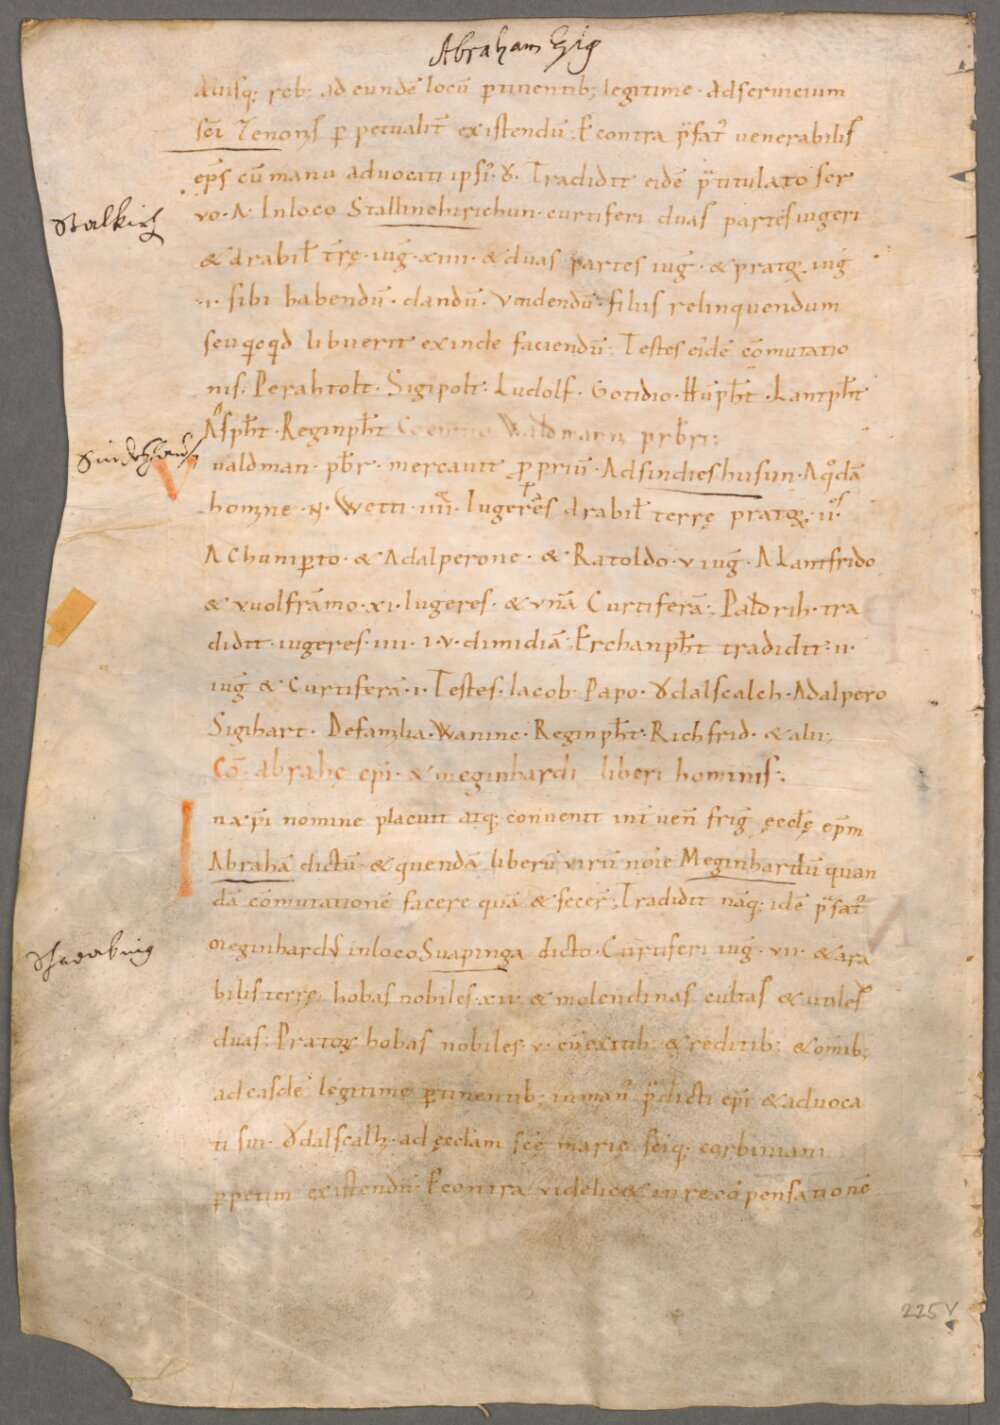 Abraham Eig
aliisq; reb; ad eundē locū ꝑtinentib; legitime · ad servicium
sc̄i Zenonis ꝑ petualit̄ existendū. E contra p̄fat᾿ venerabilis
ep̄s cū manu advocati ipsi᾿ · Tradidit eidē p̄titulato ser
Stalkirch
vo · N · In loco Stallinchirichun · curtiferi duas partes iugeri
& arabil̄ t̄rę · iug̃ · xiiii · & duas partes iug̃ · & pratoꝝ iug̃
·i· sibi habendū · dandū · vendendū · filiis relinquendum
seu qcqd libuerit exinde faciendū; Testes eidē cōmutatio
nis · Perahtolt · Sigipolt · Ludolf · Gotidio · Hūpħt · Lantpħt
Aspħt · Reginpħt Waldmann prb̄ri;
Sindeshausen
Valdman · pb̄r · mercavit ꝓpriū · Ad sindieshusun · A qdā
homine · N · Wetti · iiii · Iugeres arabil̄ terrę pratoꝝ · ii ·
A Chuniꝑto · & Adalperone · & Ratoldo · v iug̃ · A Lantfrido
& vuolfrāmo · xi · Iugeres · & vnā Curtiferā; Paldrih · tra
didit · iugeres · iiii · i · v · dimidiā; Erchanpħt tradidit · ii ·
iug̃ & Curtiferā · i · Testes · Iacob · Papo · Ƴdalscalch · Adalpero
Sigihart · De familia · Wanine · Reginpħt · Richfrid · & alii;
Cō abrahę epi · & meginhardi liberi hominis;
In xp̄i nomine placuit atq; convenit int̄ ven̄ frig̃ ęcclę ep̄m
Abrahā dictū & quendā liberū virū nōie Meginhardū quan
dā cōmutationē facere quā & fecer̄; Tradidit nāq; idē p̄fat᾿
Schwabing
meginhardꝰ in loco Suapinga dicto · Curtiferi iug̃ · vii · & ara
bilis terrę hobas nobiles · xii · & molendinas cultas & utiles
duas; Pratoꝝ hobas nobiles · v · cū exitib; & reditib; & om̄ib;
ad easdē legitime ꝑtinentib; in man᾿ p̄dicti epi & advoca
ti sui · Ƴdalscalh · ad ęcclam scę marię sc̄iq; corbiniani
ꝑpetim existendū · E contra videlic& in re cōpensationē
225v